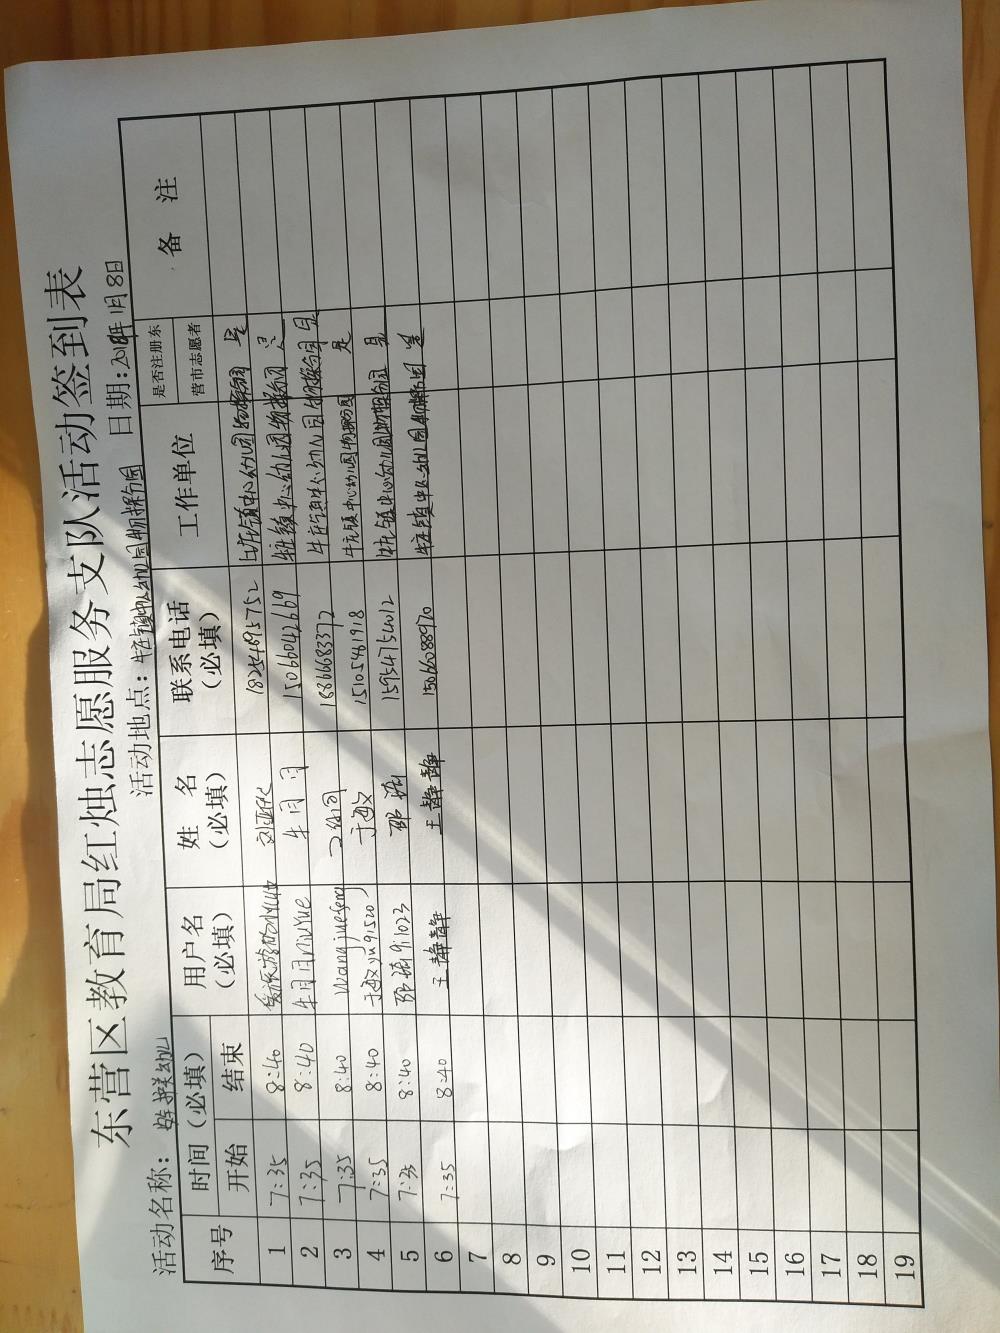 东营区教育局红烛志愿服务支队活动签到表
活动名称： 活动地点：牛庄镇中心幼儿园物探分园 日期：2018年1月8日
序号 时间（必填） 用户名（必填） 姓名（必填） 联系电话（必填） 工作单位 是否注册东营市志愿者 备注
开始 结束
1 7:35 8:40 18254695752 牛庄镇中心幼儿园物探分园 是
2 7:35 8:40 牛月月niuyue 牛月月 15066042669 牛庄镇中心幼儿园物探分园 是
3 7:35 8:40 18866683372 牛庄镇中心幼儿园物探分园 是
4 7:35 8:40 于敏yu91520 于敏 15105461918 牛庄镇中心幼儿园物探分园 是
5 7:35 8:40 邵清911023 邵清 15954754012 牛庄镇中心幼儿园物探分园 是
6 7:35 8:40 王静静 王静静 15066088970 牛庄镇中心幼儿园物探分园 是
7
8
9
10
11
12
13
14
15
16
17
18
19